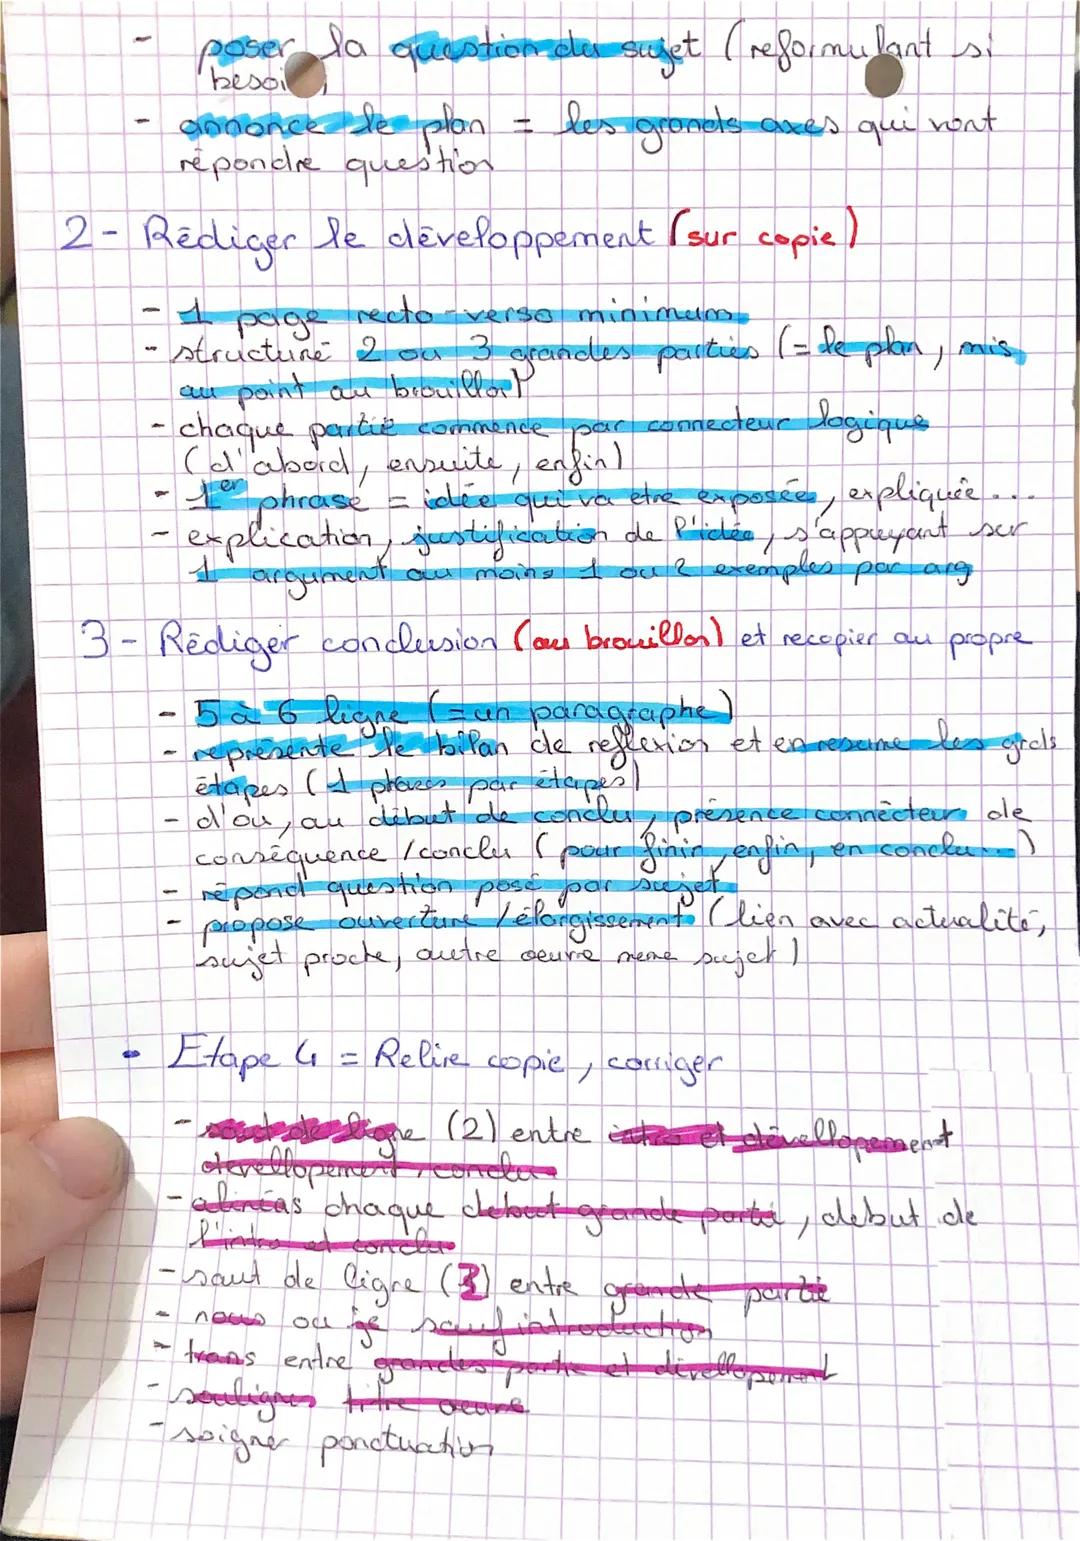 - poser la question du sujet (reformulant si
besoi
- annonce le plan = les grands axes qui vont
répondre question
2- Rédiger le développement (sur copie)
- 1 page recto-verso minimum
- structuré 2 ou 3 grandes parties (= le plan, mis
au point au brouillon)
- chaque partie commence par connecteur logique
(d'abord, ensuite, enfin)
- 1er phrase = idée qui va être exposée, expliquée...
- explication, justification de l'idée, s'appuyant sur
1 argument au moins 1 ou 2 exemples par arg
3- Rédiger conclusion (au brouillon) et recopier au propre
- 5 à 6 ligne (= un paragraphe)
- représente le bilan de reflexion et en resume les grds
étapes (1 phrases par étapes)
- d'ou, au début de conclu, présence connecteur de
conséquence / conclu (pour finir, enfin, en conclu...)
- répond question posé par sujet
- propose ouverture / élargissement (lien avec actualité,
sujet proche, autre oeuvre meme sujet)
• Etape 4 = Relire copie, corriger
- saut de ligne (2) entre intro et dévellopement
devellopement, conclu
- alinéas chaque debut grande partie, debut de
l'intro et conclu
- saut de ligne (3) entre grande partie
- nous ou je sauf introduction
- trans entre grandes partie et dévellopement
- souligner titre oeuvre
- soigner ponctuation